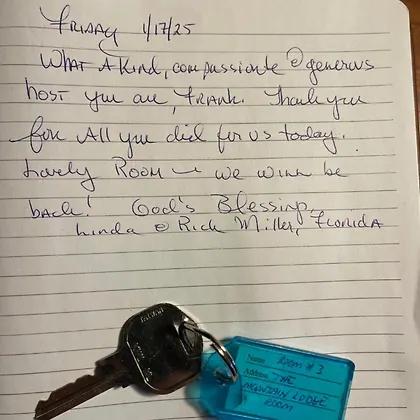 FRIDAY 1/17/25
WHAT A KIND, compassionate & generous
host you are, FRANK. Thank you
for All you did for us today.
Lovely ROOM — we will be
back! God's Blessing,
Linda & Rick Miller, FLORIDA
Name ROOM #3
Address THE
MOUNTAIN LODGE
ROOM